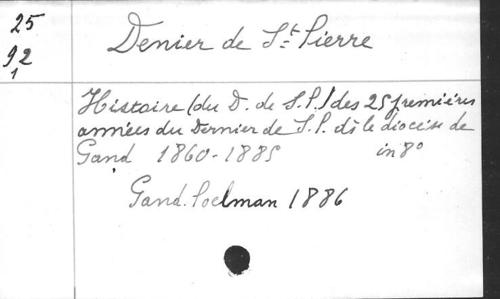 25
92
1
Denier de St. Pierre
Histoire (du D. de S.P.) des 25 premières
années du Dernier de S.P. ds le diocèse de
Gand 1860-1885 in 8°
Gand. Poelman 1886